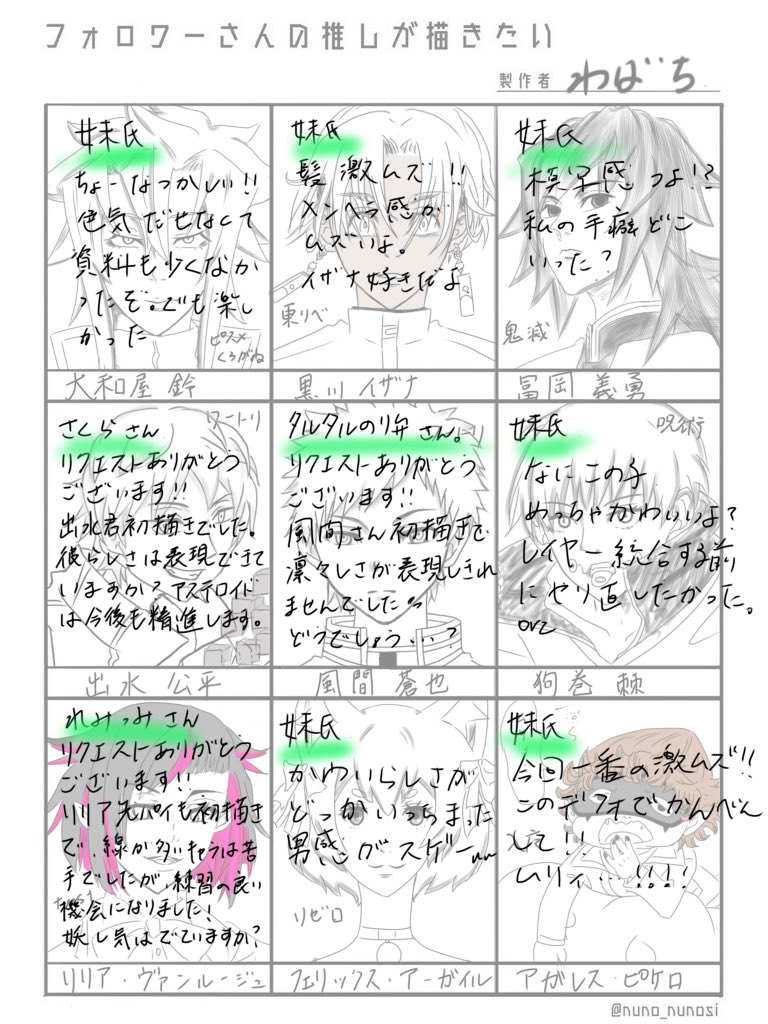 フォロワーさんの推しが描きたい
製作者 わばち
妹氏
ちょーなつかしい!!
色気だせなくて
資料も少くなか
ったぞ。でも楽し
かった
ピスメ
くろがね
大和屋 鈴
妹氏
髪激ムズ!!
メンヘラ感が
ムズいよ。
イザナ好きだよ
東リベ
黒川 イザナ
妹氏
模写感つよ!?
私の手癖どこ
いった?
鬼滅
冨岡 義勇
ワートリ
さくらさん
リクエストありがとう
ございます!!
出水君初描きでした。
彼らしさは表現できて
いますか?アステロイド
は今後も精進します。
出水 公平
タルタルのり弁さん。
リクエストありがとう
ございます!!
風間さん初描きで
凛々しさが表現しきれ
ませんでした
どうでしょう…?
風間 蒼也
呪術
妹氏
なにこの子
めっちゃかわいいよ?
レイヤー統合する前
にやり直したかった。
orz
狗巻 棘
れみつみさん
リクエストありがとう
ございます!!
リリア先パイも初描き
で、線が多いキャラは苦
手でしたが、練習の良い
機会になりました!
妖し気はでていますか?
リリア・ヴァンルージュ
妹氏
かわいらしさが
どっかいっちまった
男感がスゲー
リゼロ
フェリックス・アーガイル
妹氏
今回一番の激ムズ!!
このデフォでかんべん
して!!
ムリィ…!!!!
アガレス・ピケロ
@nuno_nunosi